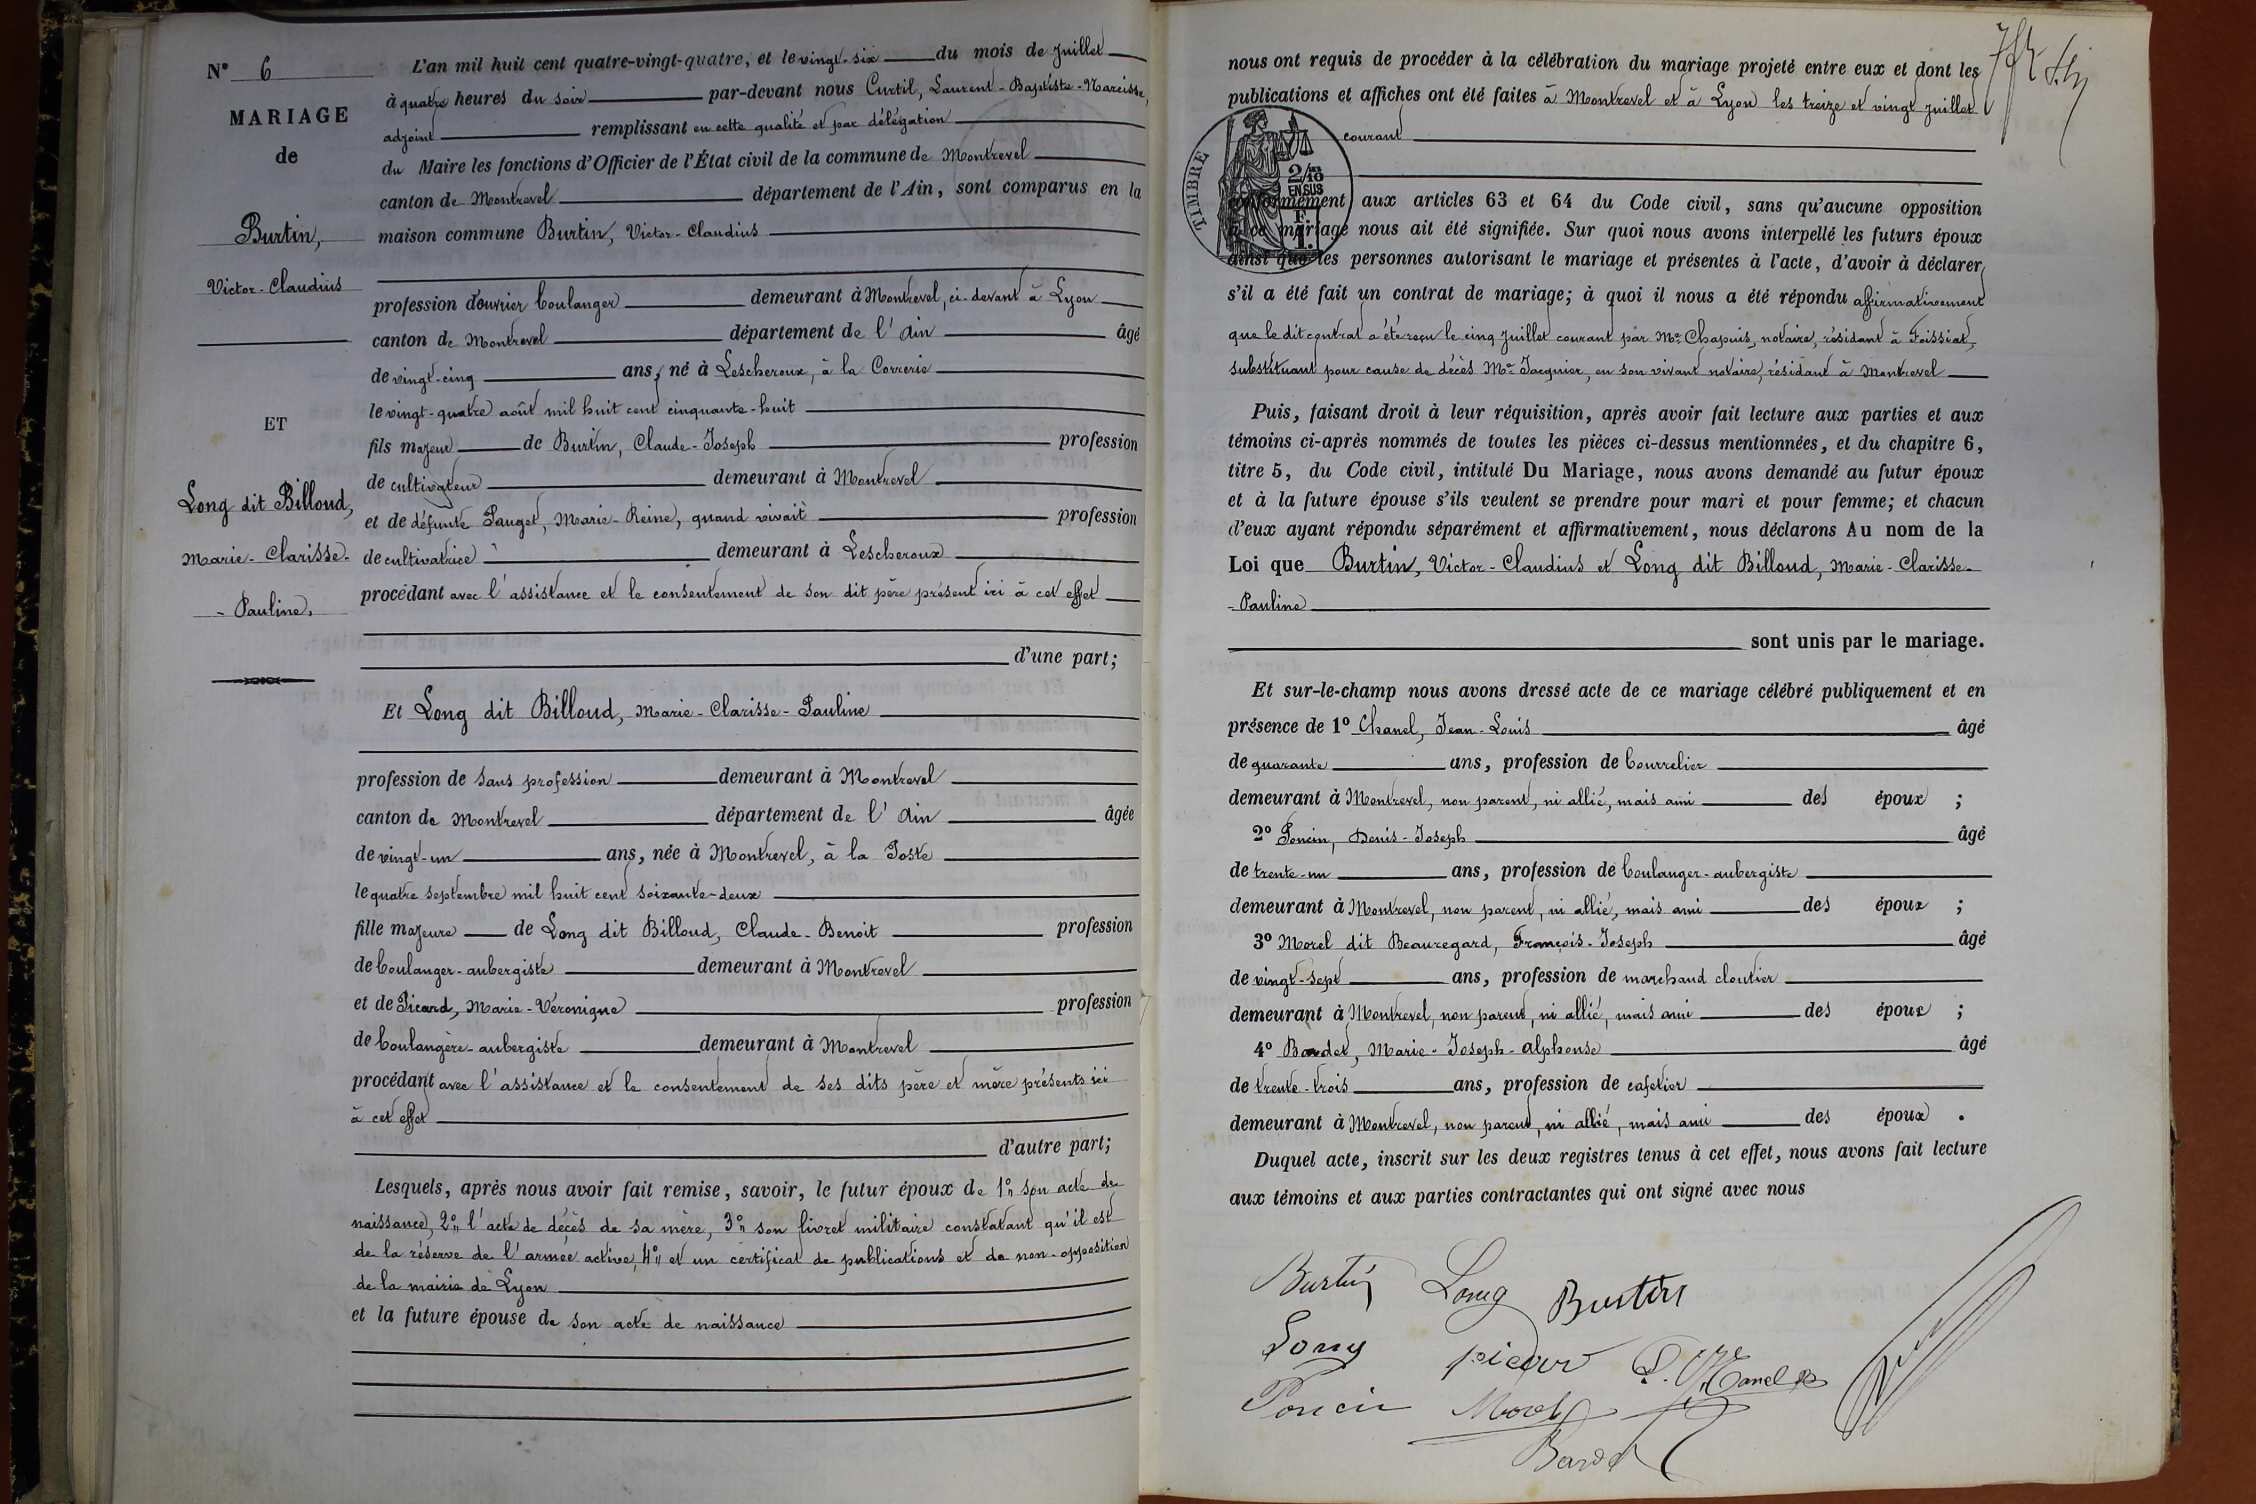 N° 6
MARIAGE
de
Burtin,
Victor-Claudius
ET
Long dit Billoud,
Marie-Clarisse-
-Pauline.
L'an mil huit cent quatre-vingt-quatre, et le vingt-six du mois de Juillet
à quatre heures du soir par-devant nous Curtil, Laurent-Baptiste-Narcisse,
adjoint remplissant en cette qualité et par délégation
du Maire les fonctions d'Officier de l'État civil de la commune de Montrevel
canton de Montrevel département de l'Ain, sont comparus en la
maison commune Burtin, Victor-Claudius
profession d'ouvrier boulanger demeurant à Montrevel, ci-devant à Lyon
canton de Montrevel département de l'Ain âgé
de vingt-cinq ans, né à Lescheroux, à la Correrie
le vingt-quatre août mil huit cent cinquante-huit
fils majeur de Burtin, Claude-Joseph profession
de cultivateur demeurant à Montrevel
et de défunte Pauget, Marie-Reine, quand vivait profession
de cultivatrice demeurant à Lescheroux
procédant avec l'assistance et le consentement de son dit père présent ici à cet effet
d'une part;
Et Long dit Billoud, Marie-Clarisse-Pauline
profession de sans profession demeurant à Montrevel
canton de Montrevel département de l'Ain âgée
de vingt-un ans, née à Montrevel, à la Poste
le quatre septembre mil huit cent soixante-deux
fille majeure de Long dit Billoud, Claude-Benoit profession
de boulanger-aubergiste demeurant à Montrevel
et de Picard, Marie-Véronique profession
de boulangère-aubergiste demeurant à Montrevel
procédant avec l'assistance et le consentement de ses dits père et mère présents ici
à cet effet
d'autre part;
Lesquels, après nous avoir fait remise, savoir, le futur époux de 1° son acte de
naissance, 2° l'acte de décès de sa mère, 3° son livret militaire constatant qu'il est
de la réserve de l'armée active, 4° et un certificat de publications et de non-opposition
de la mairie de Lyon
et la future épouse de son acte de naissance
nous ont requis de procéder à la célébration du mariage projeté entre eux et dont les
publications et affiches ont été faites à Montrevel et à Lyon les treize et vingt Juillet
courant
TIMBRE
2/10
EN SUS
F.
1.
conformément aux articles 63 et 64 du Code civil, sans qu'aucune opposition
à ce mariage nous ait été signifiée. Sur quoi nous avons interpellé les futurs époux
ainsi que les personnes autorisant le mariage et présentes à l'acte, d'avoir à déclarer
s'il a été fait un contrat de mariage; à quoi il nous a été répondu affirmativement
que le dit contrat a été reçu le cinq Juillet courant par Me Chapuis, notaire, résidant à Foissiat,
substituant pour cause de décès Me Jacquier, en son vivant notaire, résidant à Montrevel
Puis, faisant droit à leur réquisition, après avoir fait lecture aux parties et aux
témoins ci-après nommés de toutes les pièces ci-dessus mentionnées, et du chapitre 6,
titre 5, du Code civil, intitulé Du Mariage, nous avons demandé au futur époux
et à la future épouse s'ils veulent se prendre pour mari et pour femme; et chacun
d'eux ayant répondu séparément et affirmativement, nous déclarons Au nom de la
Loi que Burtin, Victor-Claudius et Long dit Billoud, Marie-Clarisse-
-Pauline
sont unis par le mariage.
Et sur-le-champ nous avons dressé acte de ce mariage célébré publiquement et en
présence de 1° Chanel, Jean-Louis âgé
de quarante ans, profession de bourrelier
demeurant à Montrevel, non parent, ni allié, mais ami des époux ;
2° Poncin, Denis-Joseph âgé
de trente-un ans, profession de boulanger-aubergiste
demeurant à Montrevel, non parent, ni allié, mais ami des époux ;
3° Morel dit Beauregard, François-Joseph âgé
de vingt-sept ans, profession de marchand cloutier
demeurant à Montrevel, non parent, ni allié, mais ami des époux ;
4° Bardet, Marie-Joseph-Alphonse âgé
de trente-trois ans, profession de cafetier
demeurant à Montrevel, non parent, ni allié, mais ami des époux .
Duquel acte, inscrit sur les deux registres tenus à cet effet, nous avons fait lecture
aux témoins et aux parties contractantes qui ont signé avec nous
Burtin Long Burtin
Long picard L. Chanel
Poncin Morel
Bardet